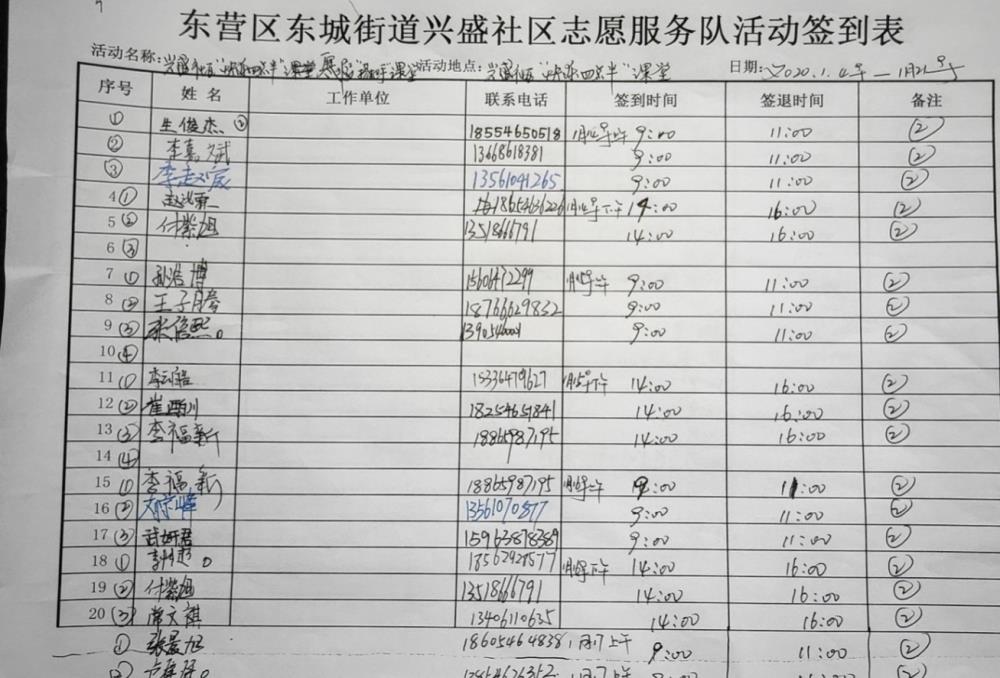 东营区东城街道兴盛社区志愿服务队活动签到表
活动名称: 兴盛社区"快乐四点半"课堂 活动地点: 兴盛社区"快乐四点半"课堂 日期: 2020.1.4号—1月21号
序号 姓名 工作单位 联系电话 签到时间 签退时间 备注
① 生俊杰 ② 18554650518 9:00 11:00 ②
② 李嘉斌 13668618381 9:00 11:00 ②
③ 13561041265 9:00 11:00 ②
4 ① 18654636226 下午 14:00 16:00 ②
5 ② 付紫旭 13518666791 14:00 16:00 ②
6 ③
7 ① 孙浩博 15606472299 9:00 11:00 ②
8 ② 王子腾 18766629832 9:00 11:00 ②
9 ③ 张倍熙。 9:00 11:00 ②
10 ④
11 ① 15336479627 下午 14:00 16:00 ②
12 ② 18254651841 14:00 16:00 ②
13 ③ 李福新 18865987195 14:00 16:00 ②
14 ④
15 ① 李福新 18865987195 9:00 11:00 ②
16 ② 13561070877 9:00 11:00 ②
17 ③ 武妍君 15963878389 9:00 11:00 ②
18 ① 18562928577 下午 14:00 16:00 ②
19 ② 付紫旭 13518666791 14:00 16:00 ②
20 ③ 常文祺 13406110635 14:00 16:00 ②
① 张景旭 18605464838 上午 9:00 11:00 ②